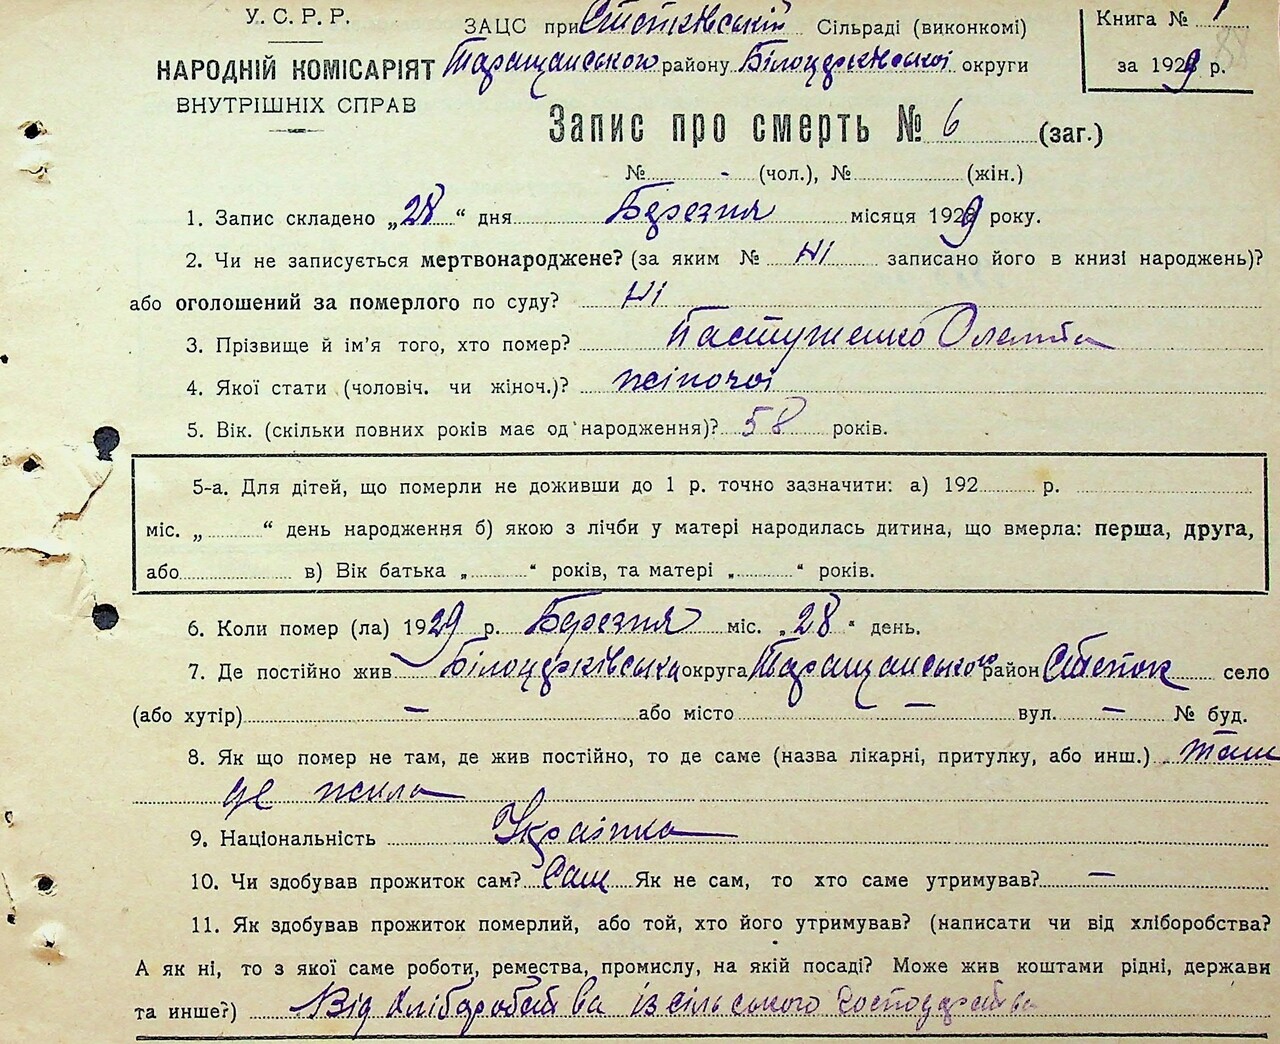 У. С. Р. Р.
НАРОДНІЙ КОМІСАРІЯТ
ВНУТРІШНІХ СПРАВ
ЗАЦС при Степківській Сільраді (виконкомі)
Таращанського району Білоцерківської округи
Книга № 1
за 1929 р.
88
Запис про смерть № 6 (заг.)
№ - (чол.), № (жін.)
1. Запис складено „28“ дня Березня місяця 1929 року.
2. Чи не записується мертвонароджене? (за яким № Ні записано його в книзі народжень)?
або оголошений за померлого по суду? Ні
3. Прізвище й ім'я того, хто помер? Пастушенко
4. Якої стати (чоловіч. чи жіноч.)? жіночої
5. Вік. (скільки повних років має од народження)? 58 років.
5-а. Для дітей, що померли не доживши до 1 р. точно зазначити: а) 192 р.
міс. „ “ день народження б) якою з лічби у матері народилась дитина, що вмерла: перша, друга,
або в) Вік батька „ “ років, та матері „ “ років.
6. Коли помер (ла) 1929 р. Березня міс. „28“ день.
7. Де постійно жив Білоцерківська округа Таращанського район Степок село
(або хутір) — або місто — вул. — № буд.
8. Як що помер не там, де жив постійно, то де саме (назва лікарні, притулку, або инш.) там
де жила
9. Національність Українка
10. Чи здобував прожиток сам? Сам Як не сам, то хто саме утримував? —
11. Як здобував прожиток померлий, або той, хто його утримував? (написати чи від хліборобства?
А як ні, то з якої саме роботи, ремества, промислу, на якій посаді? Може жив коштами рідні, держави
та инше?) Від хліборобства із сільського господарства